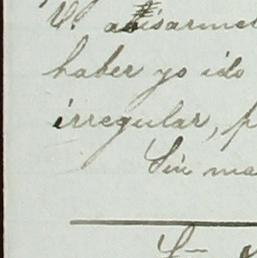 V. abisarme
haber yo ido
irregular, p
Sin ma